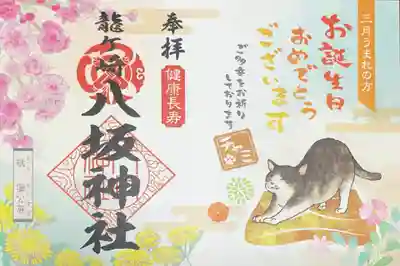 三月うまれの方
お誕生日
おめでとう
ございます
ご多幸をお祈り
しております
奉拝
健康長寿
龍ケ崎
八坂神社